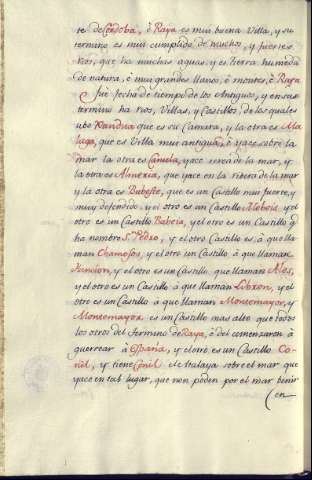 te de Cordoba, è Raya es mui buena Villa, y su
termino es mui cumplido de muchos, y fuertes
rios, que ha muchas aguas, y es tierra humeda
de natura, è mui grandes llanos, è montes, è Raya
fuè fecha de tiempo de los Antiguos, y en sus
terminos ha rios, Villas, y Castillos, de los quales
ubo es su Camara, y la otra es Ma
laga, que es Villa mui antigua, è yaze sobre la
mar la otra es yace cerca de la mar, y
la otra es Almexia, que yace en la ribera de la mar
y la otra es que es un Castillo mui fuerte, y
muy defendido, y el otro es un Castillo y el
otro es un Castillo y el otro es un Castillo q.
ha nombre S. Pedro, y el otro Castillo es, à que lla
man y el otro un Castillo à que llaman
y el otro es un Castillo, que llaman
y el otro es un Castillo à que llaman y el
otro es un Castillo à que llaman Montemayor, y
Montemayor es un Castillo mas alto que todos
los otros del termino de Raya, è del comenzaron à
guerrear à España, y el otro es un Castillo Co
nil, y tiene Conil el Atalaya sobre el mar que
yace en tal lugar, que non poden por el mar benir
(en